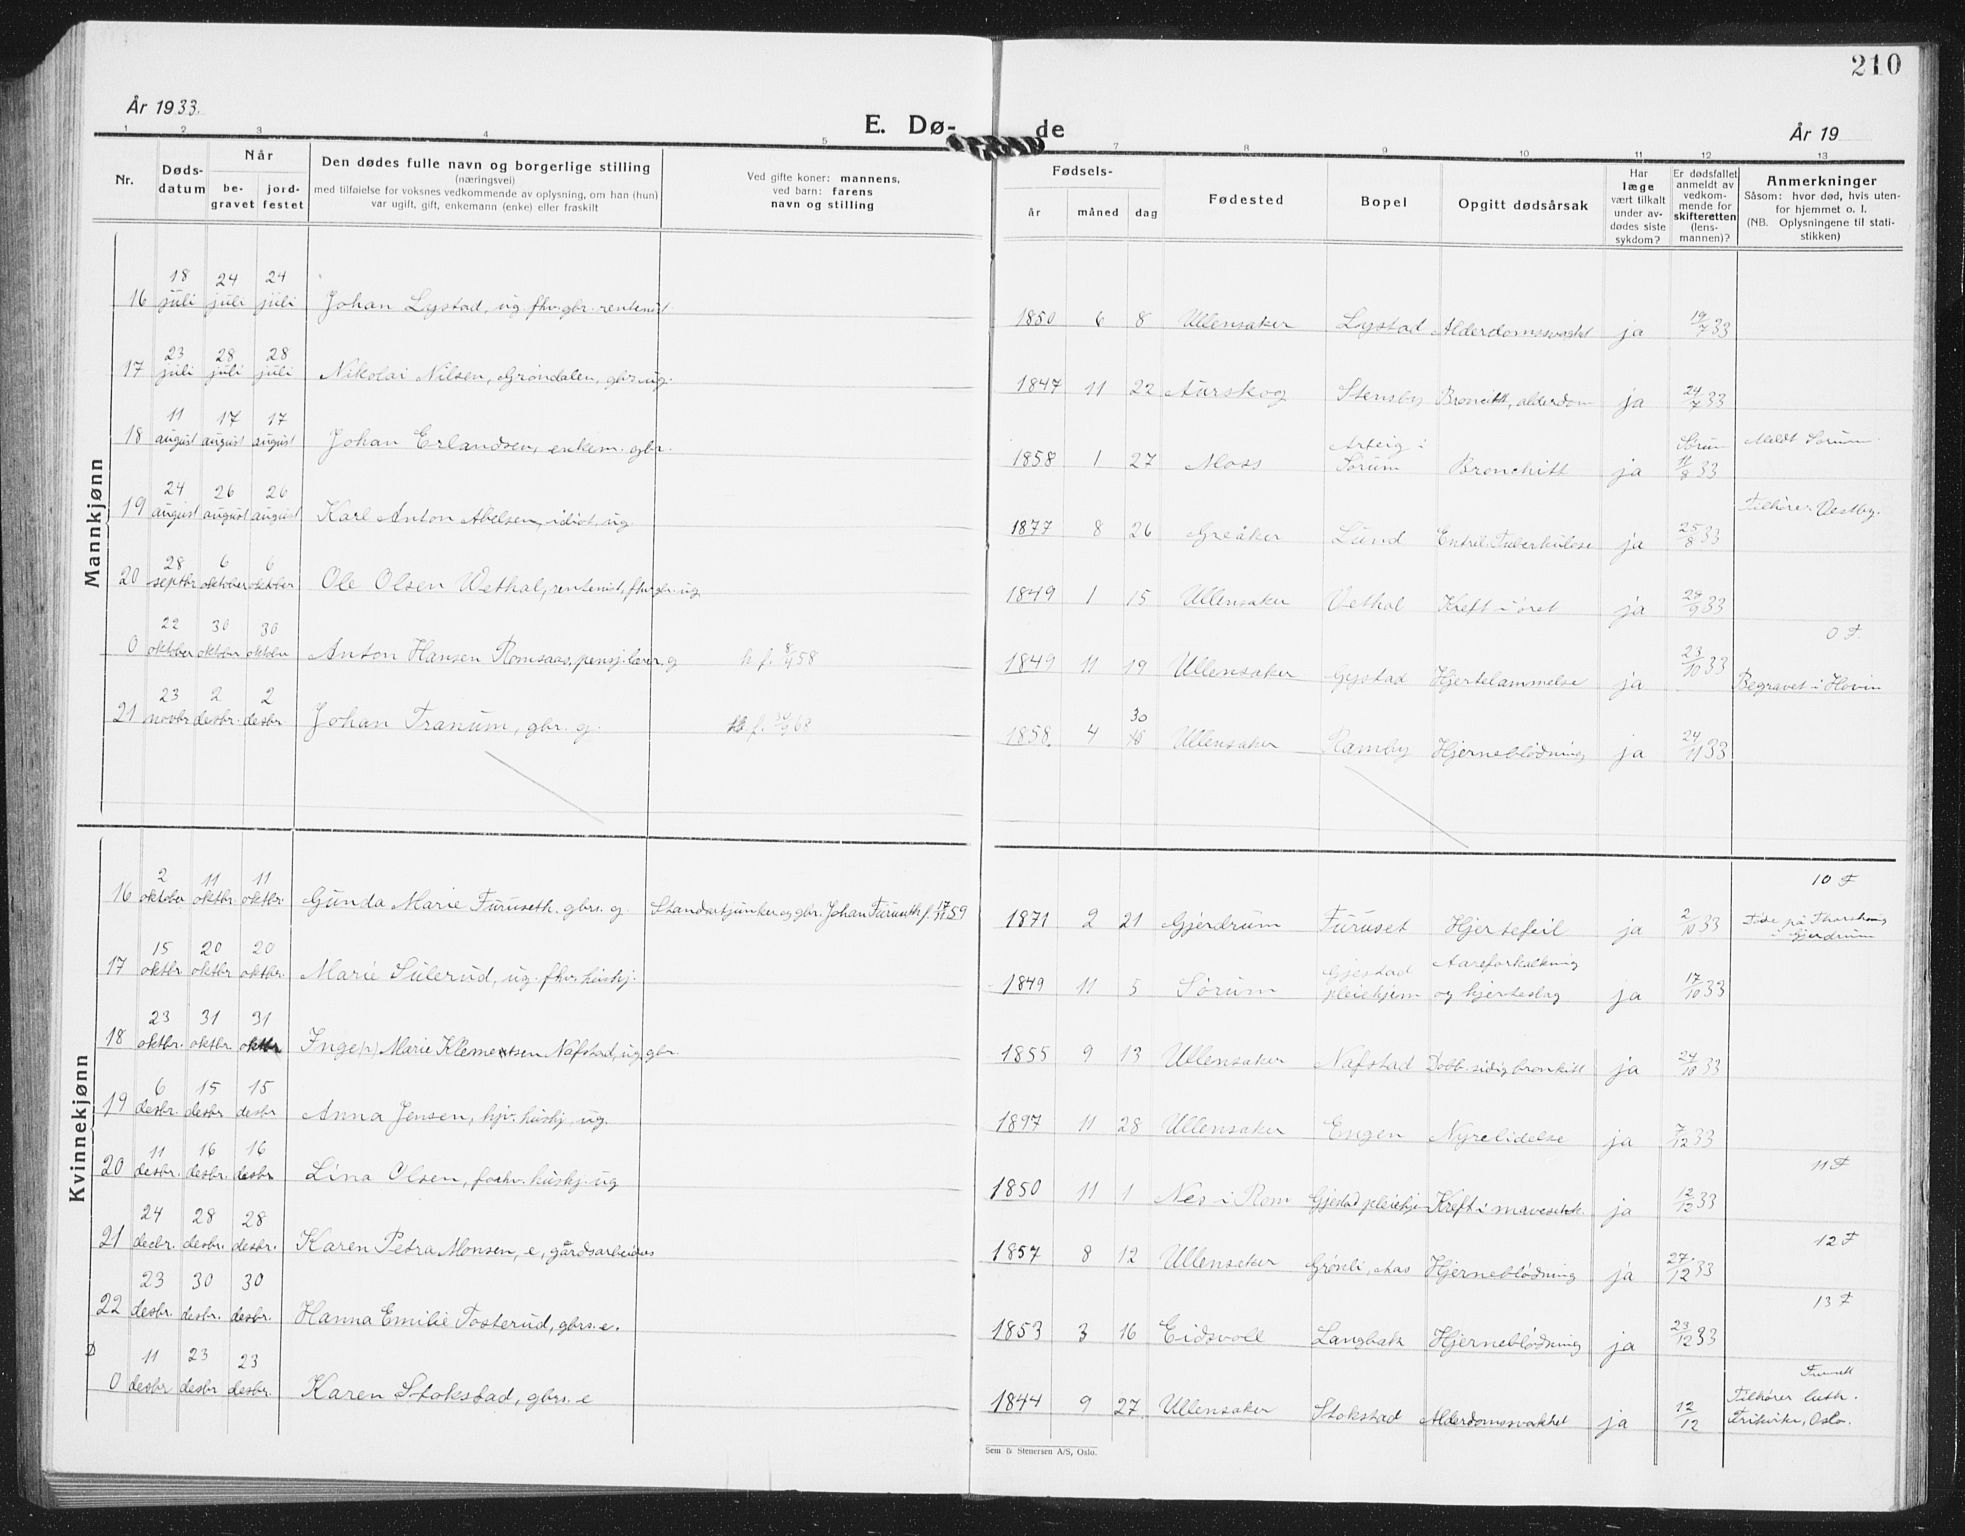 210
År 1933.
E. Dø- de
År 19
1 2 3 4 5 7 8 9 10 11 12 13
Nr.
Døds-
datum
Når
be-
gravet
jord-
festet
Den dødes fulle navn og borgerlige stilling
(næringsvei)
med tilføielse for voksnes vedkommende av oplysning, om han (hun)
var ugift, gift, enkemann (enke) eller fraskilt
Ved gifte koner: mannens,
ved barn: farens
navn og stilling
Fødsels-
år måned dag
Fødested
Bopel
Opgitt dødsårsak
Har
læge
vært tilkalt
under av-
dødes siste
sykdom?
Er dødsfallet
anmeldt av
vedkom-
mende for
skifteretten
(lens-
mannen)?
Anmerkninger
Såsom: hvor død, hvis uten-
for hjemmet o. l.
(NB. Oplysningene til stati-
stikken)
Mannkjønn
16 18 juli 24 juli 24 juli Johan Lystad, ug. fhv. gbr. rentenist 1850 6 8 Ullensaker Lystad Alderdomssvakhet ja 19/7 33
17 23 juli 28 juli 28 juli Nikolai Nilsen, Grøndalen, gbr. ug. 1847 11 22 Aurskog Stensby Bronchitt, alderdom ja 24/7 33
18 11 august 17 august 17 august Johan Erlandsen, enkem. gbr. 1858 1 27 Moss Arteig i Sørum Bronchitt ja Sørum 11/8 33 Meldt Sørum.
19 24 august 26 august 26 august Karl Anton Abelsen, idiot, ug. 1877 8 26 Greåker Lund Tuberkulose ja 25/8 33 Tilhører Vestby.
20 28 septbr 6 oktober 6 oktober Ole Olsen Wethal, rentenist, fhv. gbr. ug. 1849 1 15 Ullensaker Vethal Kreft i øret ja 28/9 33
0 22 oktober 30 oktobr 30 oktober Anton Hansen Romsaas, pensj. lærer, g h. f. 58 1849 11 19 Ullensaker Gystad Hjertelammelse ja 23/10 33 0 F. Begravet i Hovin
21 23 novbr 2 desbr. 2 desbr Johan Tranum, gbr. g. f. 68 1858 4 30 18 Ullensaker Ramby Hjerneblødning ja 24/11 33
Kvinnekjønn
16 2 oktober 11 oktbr 11 oktbr. Gunda Marie Furuseth, gbrs. g Standartjunker og gbr. Johan Furuseth f. 59 1871 2 21 Gjerdrum Furuset Hjertefeil ja 2/10 33 10 F på i Gjerdrum
17 15 oktbr 20 oktbr 20 oktbr. Marie Sulerud, ug. fhv. hushj. 1849 11 5 Sørum Gjestad pleiehjem Aareforkalkning og hjerteslag ja 17/10 33
18 23 oktbr. 31 oktbr 31 oktbr Inge(r) Marie Klementsen Nafstad, ug. gbr. 1855 9 13 Ullensaker Nafstad Dobb. sidig bronkitt ja 24/10 33
19 6 desbr. 15 desbr 15 desbr Anna Jensen, hjv. hushj. ug. 1897 11 28 Ullensaker Engen Nyrelidelse ja 7/12 33
20 11 desbr. 16 desbr. 16 desbr Lina Olsen, forhv. hushj. ug 1850 11 1 Nes i Rom Gjestad pleiehje Kreft i mavesekk. ja 12/12 33 11 F
21 24 decbr. 28 desbr. 28 desbr. Karen Petra Monsen, e, gårdsarbeiders 1857 8 12 Ullensaker Grønli, Aas Hjerneblødning ja 27/12 33 12 F
22 23 desbr. 30 desbr. 30 desbr. Hanna Emilie Tosterud, gbrs. e. 1853 3 16 Eidsvoll Langbakk Hjerneblødning ja 23/12 33 13 F
0 11 desbr 23 desbr 23 desbr. Karen Stokstad, gbrs. e 1844 9 27 Ullensaker Stokstad Alderdomssvakhet ja 12/12 Tilhører luth. Frikirke, Oslo.
Sem & Stenersen A/S, Oslo.